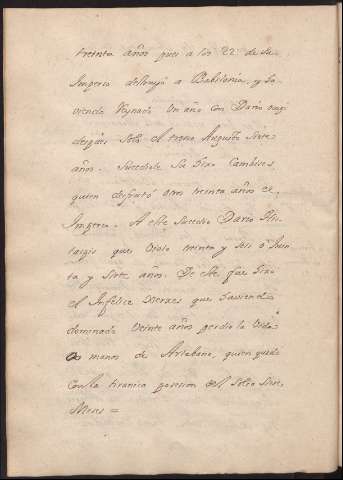 treinta años pues a los 22 de su
Imperio destruyó a Babilonia, y ha
viendo Reynado Un año con Dario
despues solo el trono Augusto siete
años. Sucediole Su Hixo Cambises
quien disfrutó otros treinta años el
Imperio. A este Sucedio Dario His
taspis que Vivio treinta y seis ó trein
ta y siete años. De este fue Hixo
el Infelice Xerxes que haviendo
dominado Veinte años perdio la Vida
a manos de Artabano, quien quedó
con la tiranica posesion del Solio Siete
Meses =